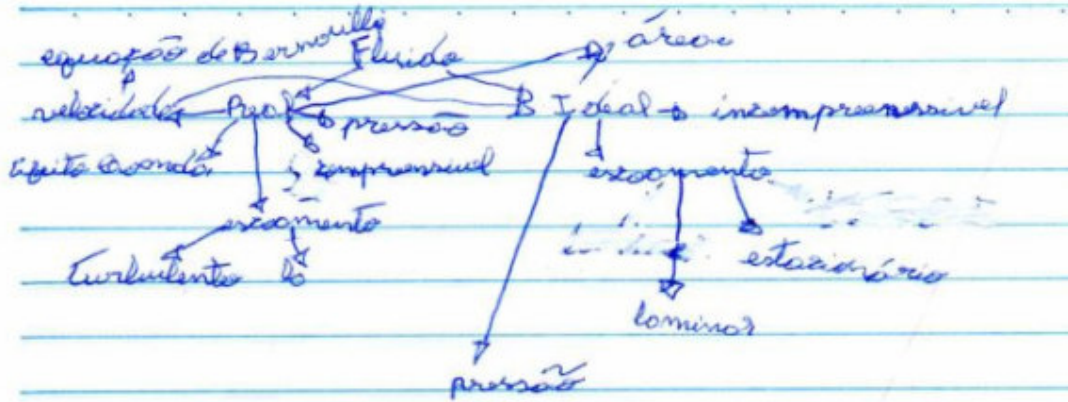 equação de Bernouilli Fluido área
velocidade Real pressão B Ideal incompreenssivel
Efeito Coandă compreenssivel escoamento
escoamento
Turbulento estacionário
laminar
pressão